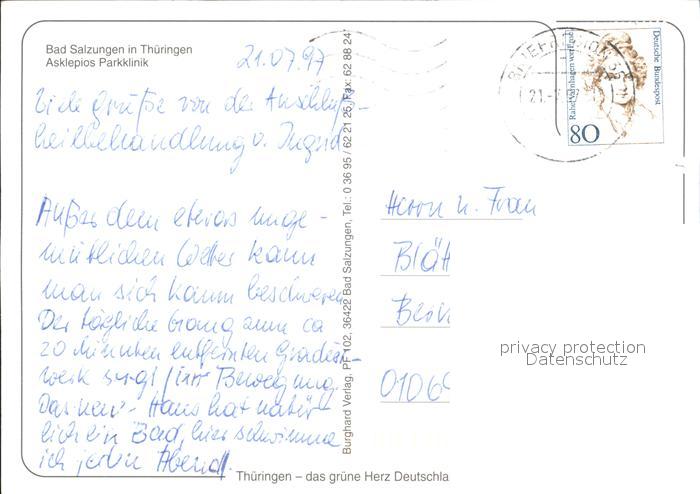 Bad Salzungen in Thüringen
Asklepios Parkklinik
21.07.97
Viele Grüße von der Anschluß-
heilbehandlung v. Ingrid
Außer dem etwas unge-
mütlichen Wetter kann
man sich kaum beschweren.
Der tägliche Gang zum ca
20 Minuten entfernten Gradier-
werk sorgt für Bewegung.
Das Haus hat natür-
lich ein Bad, hier schwimme
ich jeden Abend.
Burghard Verlag, PF 102, 36422 Bad Salzungen, Tel.: 0 36 95 / 62 21 25, Fax: 62 88 24
Thüringen – das grüne Herz Deutschla
21.
Rahel Varnhagen von Ense
80
Deutsche Bundespost
Herrn u. Frau
Blät
0106
privacy protection
Datenschutz